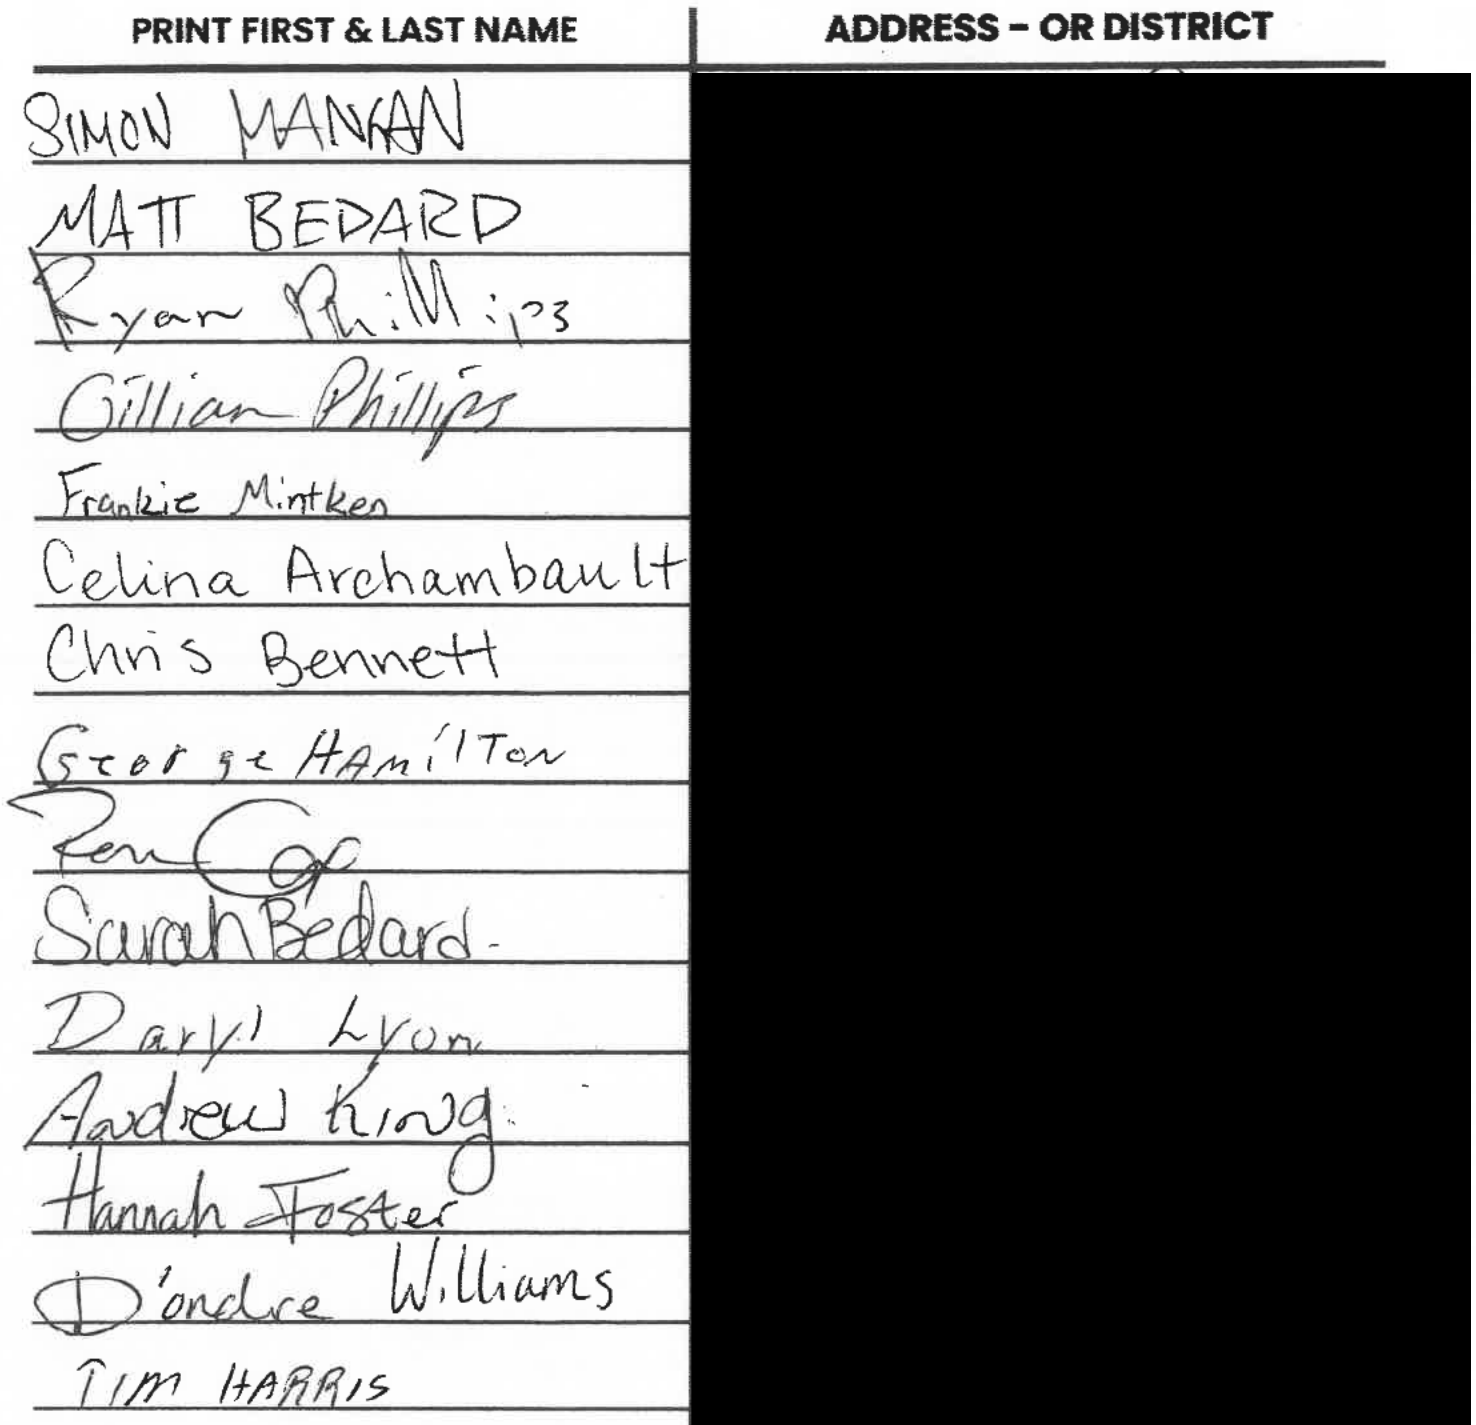 PRINT FIRST & LAST NAME ADDRESS – OR DISTRICT
SIMON MANGAN
MATT BEDARD
Ryan Phillips
Gillian Phillips
Frankie Mintken
Celina Archambault
Chris Bennett
George HAmilTon
Ron Cox
Sarah Bedard.
Daryl Lyon
Andrew King
Hannah Foster
D'ondre Williams
TIM HARRIS